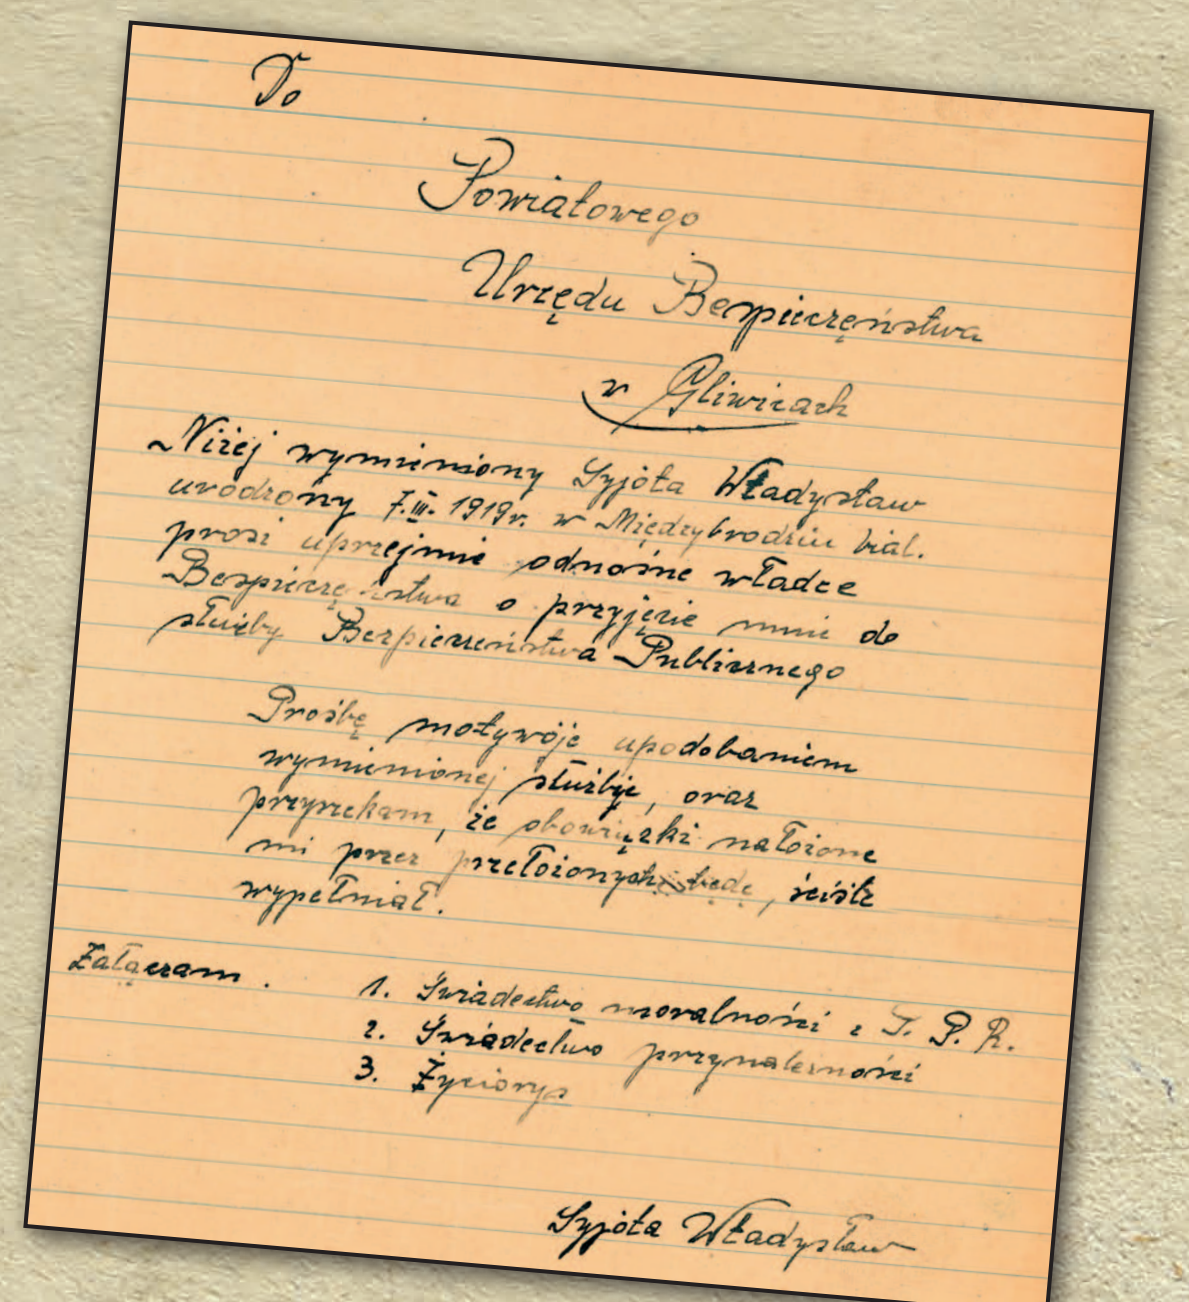 Do
Powiatowego
Urzędu Bezpieczęństwa
w Gliwicach
Niżej wymieniony Syjóta Władysław
urodzony 7.III. 1919r. w Międzybrodziu bial.
prosi uprzejmie odnośne władze
Bezpieczęństwa o przyjęcie mnie do
służby Bezpieczeństwa Publicznego
Prośbę motywóje upodobaniem
wymienionej służbie, oraz
przyrzekam, że obowiązki nałożone
mi przez przełożonych będę, ściśle
wypełniał.
Załączam.
1. Świadectwo moralności z P. R.
2. Świadectwo przynależności
3. Życiorys
Syjóta Władysław